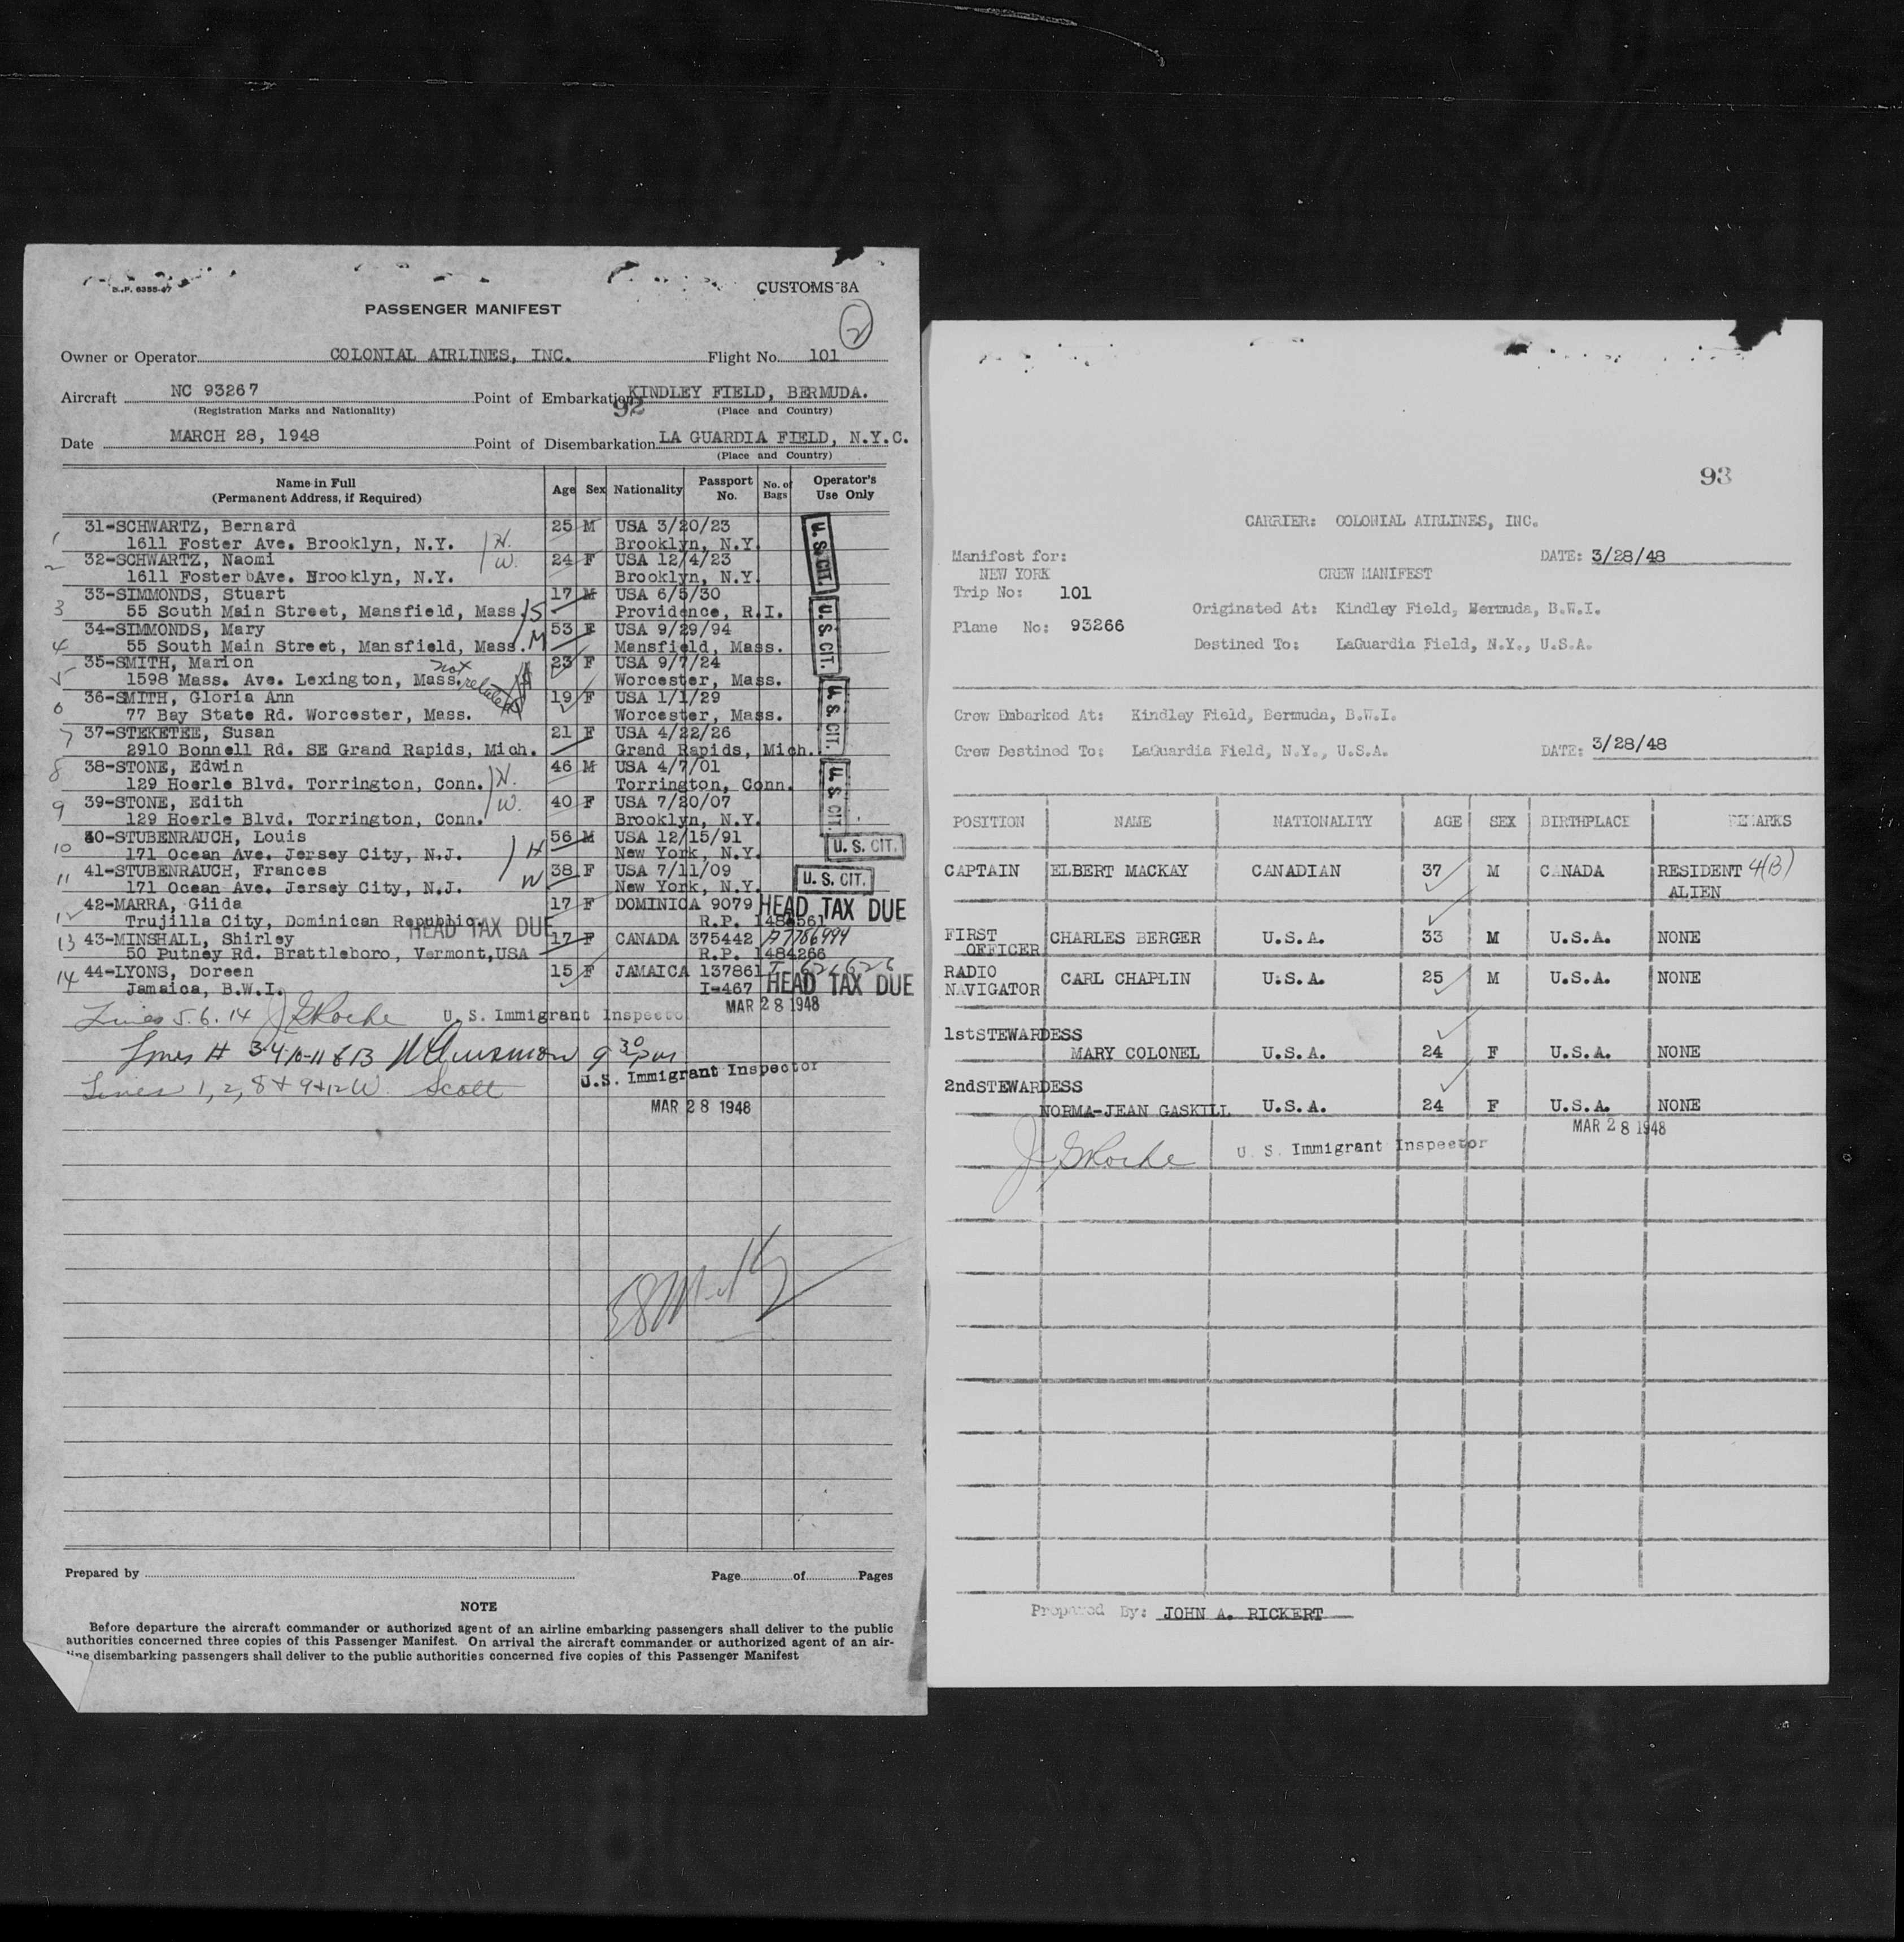 D.P. 6355-47
CUSTOMS 3A
PASSENGER MANIFEST
2
Owner or Operator COLONIAL AIRLINES, INC. Flight No. 101
Aircraft NC 93267 Point of Embarkation KINDLEY FIELD, BERMUDA.
(Registration Marks and Nationality) 92 (Place and Country)
Date MARCH 28, 1948 Point of Disembarkation LA GUARDIA FIELD, N.Y.C.
(Place and Country)
Name in Full Age Sex Nationality Passport No. No. of Bags Operator's Use Only
(Permanent Address, if Required)
1 31-SCHWARTZ, Bernard 25 M USA 3/20/23 U. S. CIT.
1611 Foster Ave. Brooklyn, N.Y. H. Brooklyn, N.Y.
2 32-SCHWARTZ, Naomi W. 24 F USA 12/4/23
1611 Foster bAve. Brooklyn, N.Y. Brooklyn, N.Y.
33-SIMMONDS, Stuart 17 M USA 6/5/30 U. S. CIT.
3 55 South Main Street, Mansfield, Mass. S Providence, R.I.
34-SIMMONDS, Mary 53 F USA 9/29/94
4 55 South Main Street, Mansfield, Mass. M Mansfield, Mass.
35-SMITH, Marion not related 23 F USA 9/7/24
5 1598 Mass. Ave. Lexington, Mass. Worcester, Mass.
36-SMITH, Gloria Ann 19 F USA 1/1/29 U. S. CIT.
6 77 Bay State Rd. Worcester, Mass. Worcester, Mass.
7 37-STEKETEE, Susan 21 F USA 4/22/26
2910 Bonnell Rd. SE Grand Rapids, Mich. Grand Rapids, Mich.
8 38-STONE, Edwin 46 M USA 4/7/01 U. S. CIT.
129 Hoerle Blvd. Torrington, Conn. H. Torrington, Conn.
9 39-STONE, Edith W. 40 F USA 7/20/07
129 Hoerle Blvd. Torrington, Conn. Brooklyn, N.Y.
40-STUBENRAUCH, Louis 56 M USA 12/15/91 U. S. CIT.
10 171 Ocean Ave. Jersey City, N.J. H New York, N.Y.
11 41-STUBENRAUCH, Frances W 38 F USA 7/11/09 U. S. CIT.
171 Ocean Ave. Jersey City, N.J. New York, N.Y.
12 42-MARRA, Giida 17 F DOMINICA 9079 HEAD TAX DUE
Trujilla City, Dominican Republic. HEAD TAX DUE R.P.
13 43-MINSHALL, Shirley 17 F CANADA 375442 A7786994
50 Putney Rd. Brattleboro, Vermont,USA R.P. 1484266
14 44-LYONS, Doreen 15 F JAMAICA 137861
Jamaica, B.W.I. I-467 HEAD TAX DUE
Lines 5.6.14 J GRoche U. S. Immigrant Inspector MAR 28 1948
Lines # 3-4 10-11 & 13 9 30 pm
U.S. Immigrant Inspector
Lines 1, 2, 8 & 9 & 12 W. Scott
MAR 28 1948
Prepared by Page of Pages
NOTE
Before departure the aircraft commander or authorized agent of an airline embarking passengers shall deliver to the public
authorities concerned three copies of this Passenger Manifest. On arrival the aircraft commander or authorized agent of an air-
line disembarking passengers shall deliver to the public authorities concerned five copies of this Passenger Manifest
93
CARRIER: COLONIAL AIRLINES, INC.
Manifest for: DATE: 3/28/48
NEW YORK CREW MANIFEST
Trip No: 101
Originated At: Kindley Field, Bermuda, B.W.I.
Plane No: 93266
Destined To: LaGuardia Field, N.Y., U.S.A.
Crew Embarked At: Kindley Field, Bermuda, B.W.I.
Crew Destined To: LaGuardia Field, N.Y., U.S.A. DATE: 3/28/48
POSITION NAME NATIONALITY AGE SEX BIRTHPLACE REMARKS
CAPTAIN ELBERT MACKAY CANADIAN 37 M CANADA RESIDENT 4(B)
ALIEN
FIRST CHARLES BERGER U.S.A. 33 M U.S.A. NONE
OFFICER
RADIO CARL CHAPLIN U.S.A. 25 M U.S.A. NONE
NAVIGATOR
1stSTEWARDESS
MARY COLONEL U.S.A. 24 F U.S.A. NONE
2ndSTEWARDESS
NORMA-JEAN GASKILL U.S.A. 24 F U.S.A. NONE
MAR 28 1948
J GRoche U. S. Immigrant Inspector
Prepared By: JOHN A. RICKERT